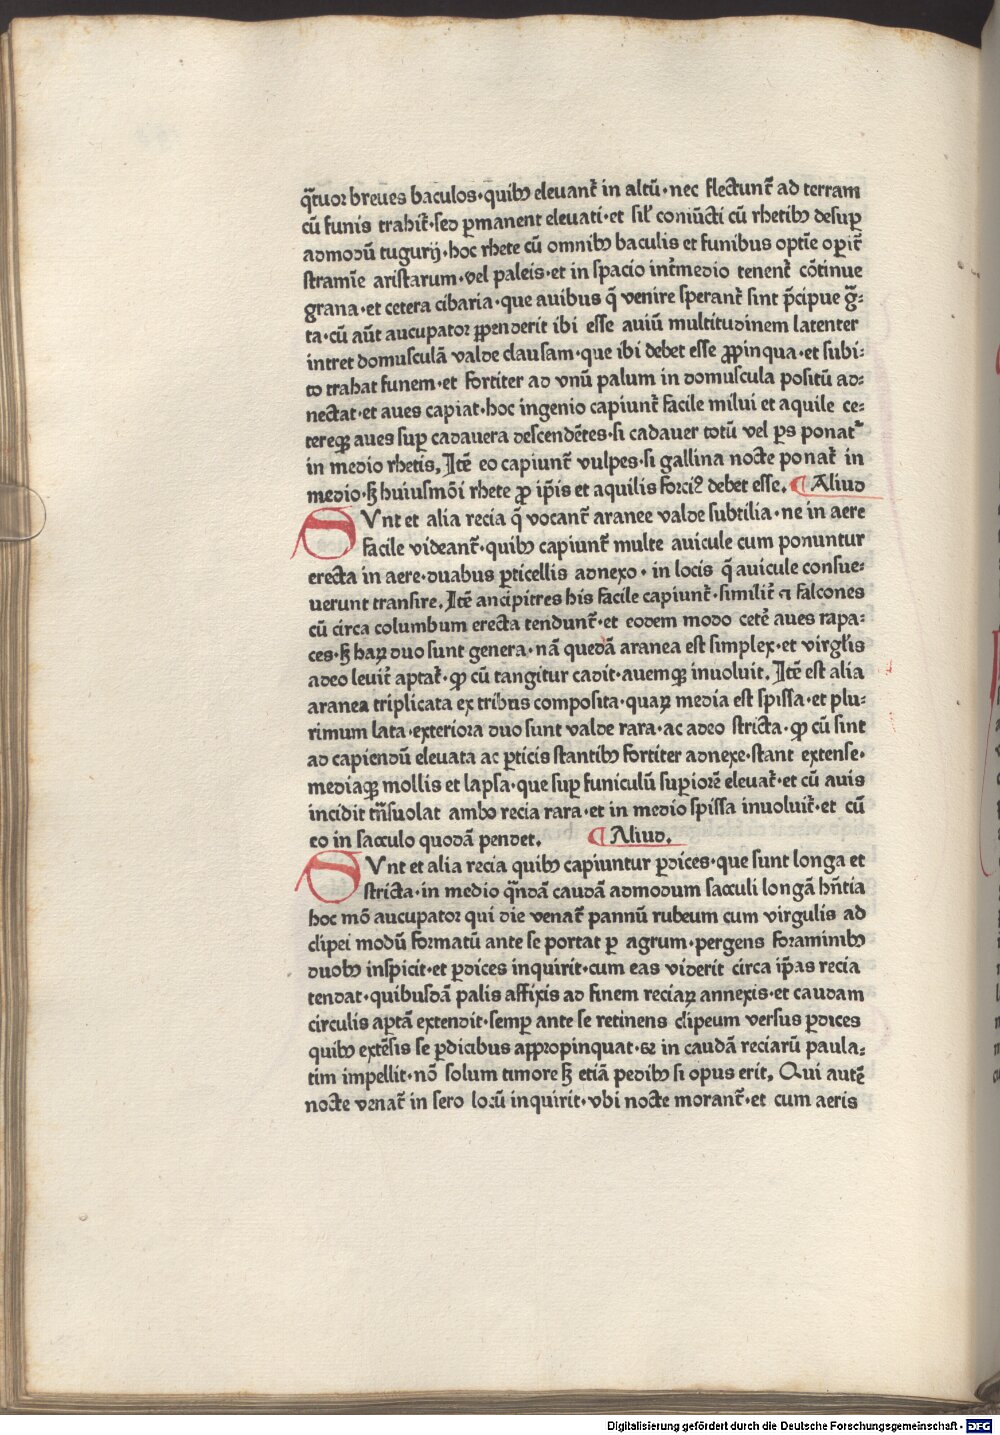 q̄tuor breues baculos·quibꝯ eleuant᷑ in altū·nec flectunt᷑ ad terram
cū funis trahit᷑·sed ꝑmanent eleuati·et sil᷑ coniūcti cū rhetibꝯ desuꝑ
admodū tugurij·hoc rhete cū omnibꝯ baculis et funibus optīe oꝑit᷑
stramīe aristarum·vel paleis·et in spacio int᷑medio tenent᷑ cōtinue
grana·et cetera cibaria·que auibus q̄ venire sperant᷑ sint p̄cipue g̃:
ta·cū aūt aucupator ꝓpenderit ibi esse auiū multitudinem latenter
intret domusculā valde clausam·que ibi debet esse ꝓpinqua·et subi:
to trahat funem·et fortiter ad vnū palum in domuscula positū ad:
nectat·et aues capiat·hoc ingenio capiunt᷑ facile milui et aquile ce:
tereqꝫ aues suꝑ cadauera descendētes·si cadauer totū vel ꝑs ponat᷑
in medio rhetis. Itē eo capiunt᷑ vulpes·si gallina nocte ponat᷑ in
medio·sꝫ huiusmōi rhete ꝓ ip̄is et aquilis forciꝰ debet esse. ¶ Aliud
SVnt et alia recia q̄ vocant᷑ aranee valde subtilia·ne in aere
facile videant᷑·quibꝯ capiunt᷑ multe auicule cum ponuntur
erecta in aere·duabus ꝑticellis adnexo·in locis q̄ auicule consue:
uerunt transire. Itē ancipitres his facile capiunt᷑·similit᷑ ⁊ falcones
cū circa columbum erecta tendunt᷑·et eodem modo cete᷑ aues rapa:
ces·sꝫ haꝝ duo sunt genera·nā quedā aranea est simplex·et virgl̓is
adeo leuit᷑ aptat᷑·ꝙ cū tangitur cadit·auemqꝫ inuoluit. Itē est alia
aranea triplicata ex tribus composita·quaꝝ media est spissa·et plu:
rimum lata·exteriora duo sunt valde rara·ac adeo stricta·ꝙ cū sint
ad capiendū eleuata ac ꝑticis stantibꝯ fortiter adnexe·stant extense·
mediaqꝫ mollis et lapsa·que suꝑ funiculū suꝑiorē eleuat᷑·et cū auis
incidit tn̄suolat ambo recia rara·et in medio spissa inuoluit᷑·et cū
eo in sacculo quodā pendet. ¶ Aliud.
SVnt et alia recia quibꝯ capiuntur ꝑdices·que sunt longa et
stricta·in medio q̄ndā caudā admodum sacculi longā hn̄tia
hoc mō aucupator qui die venat᷑ pannū rubeum cum virgulis ad
clipei modū formatū ante se portat ꝑ agrum·pergens foraminibꝯ
duobꝯ inspicit·et ꝑdices inquirit·cum eas viderit circa ip̄as recia
tendat·quibusdā palis affixis ad finem reciaꝝ annexis·et caudam
circulis aptā extendit·semꝑ ante se retinens clipeum versus ꝑdices
quibꝯ extēsis se ꝑdicibus appropinquat·⁊ in caudā reciarū paula:
tim impellit·nō solum timore sꝫ etiā pedibꝯ si opus erit. Qui autē
nocte venat᷑ in sero locū inquirit·vbi nocte morant᷑·et cum aeris
Digitalisierung gefördert durch die Deutsche Forschungsgemeinschaft - DFG